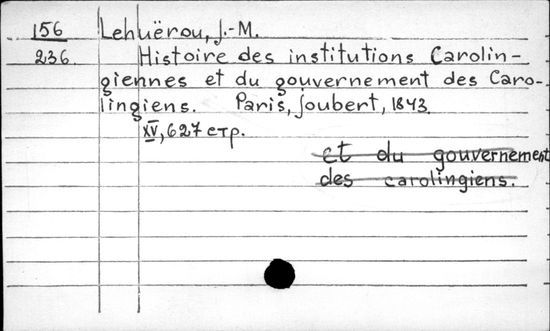 156 Lehuërou, J.-M.
236. Histoire des institutions Carolin-
giennes et du gouvernement des Caro-
lingiens. Paris, Joubert, 1843.
XV, 627 стр.
et du gouvernement
des carolingiens.